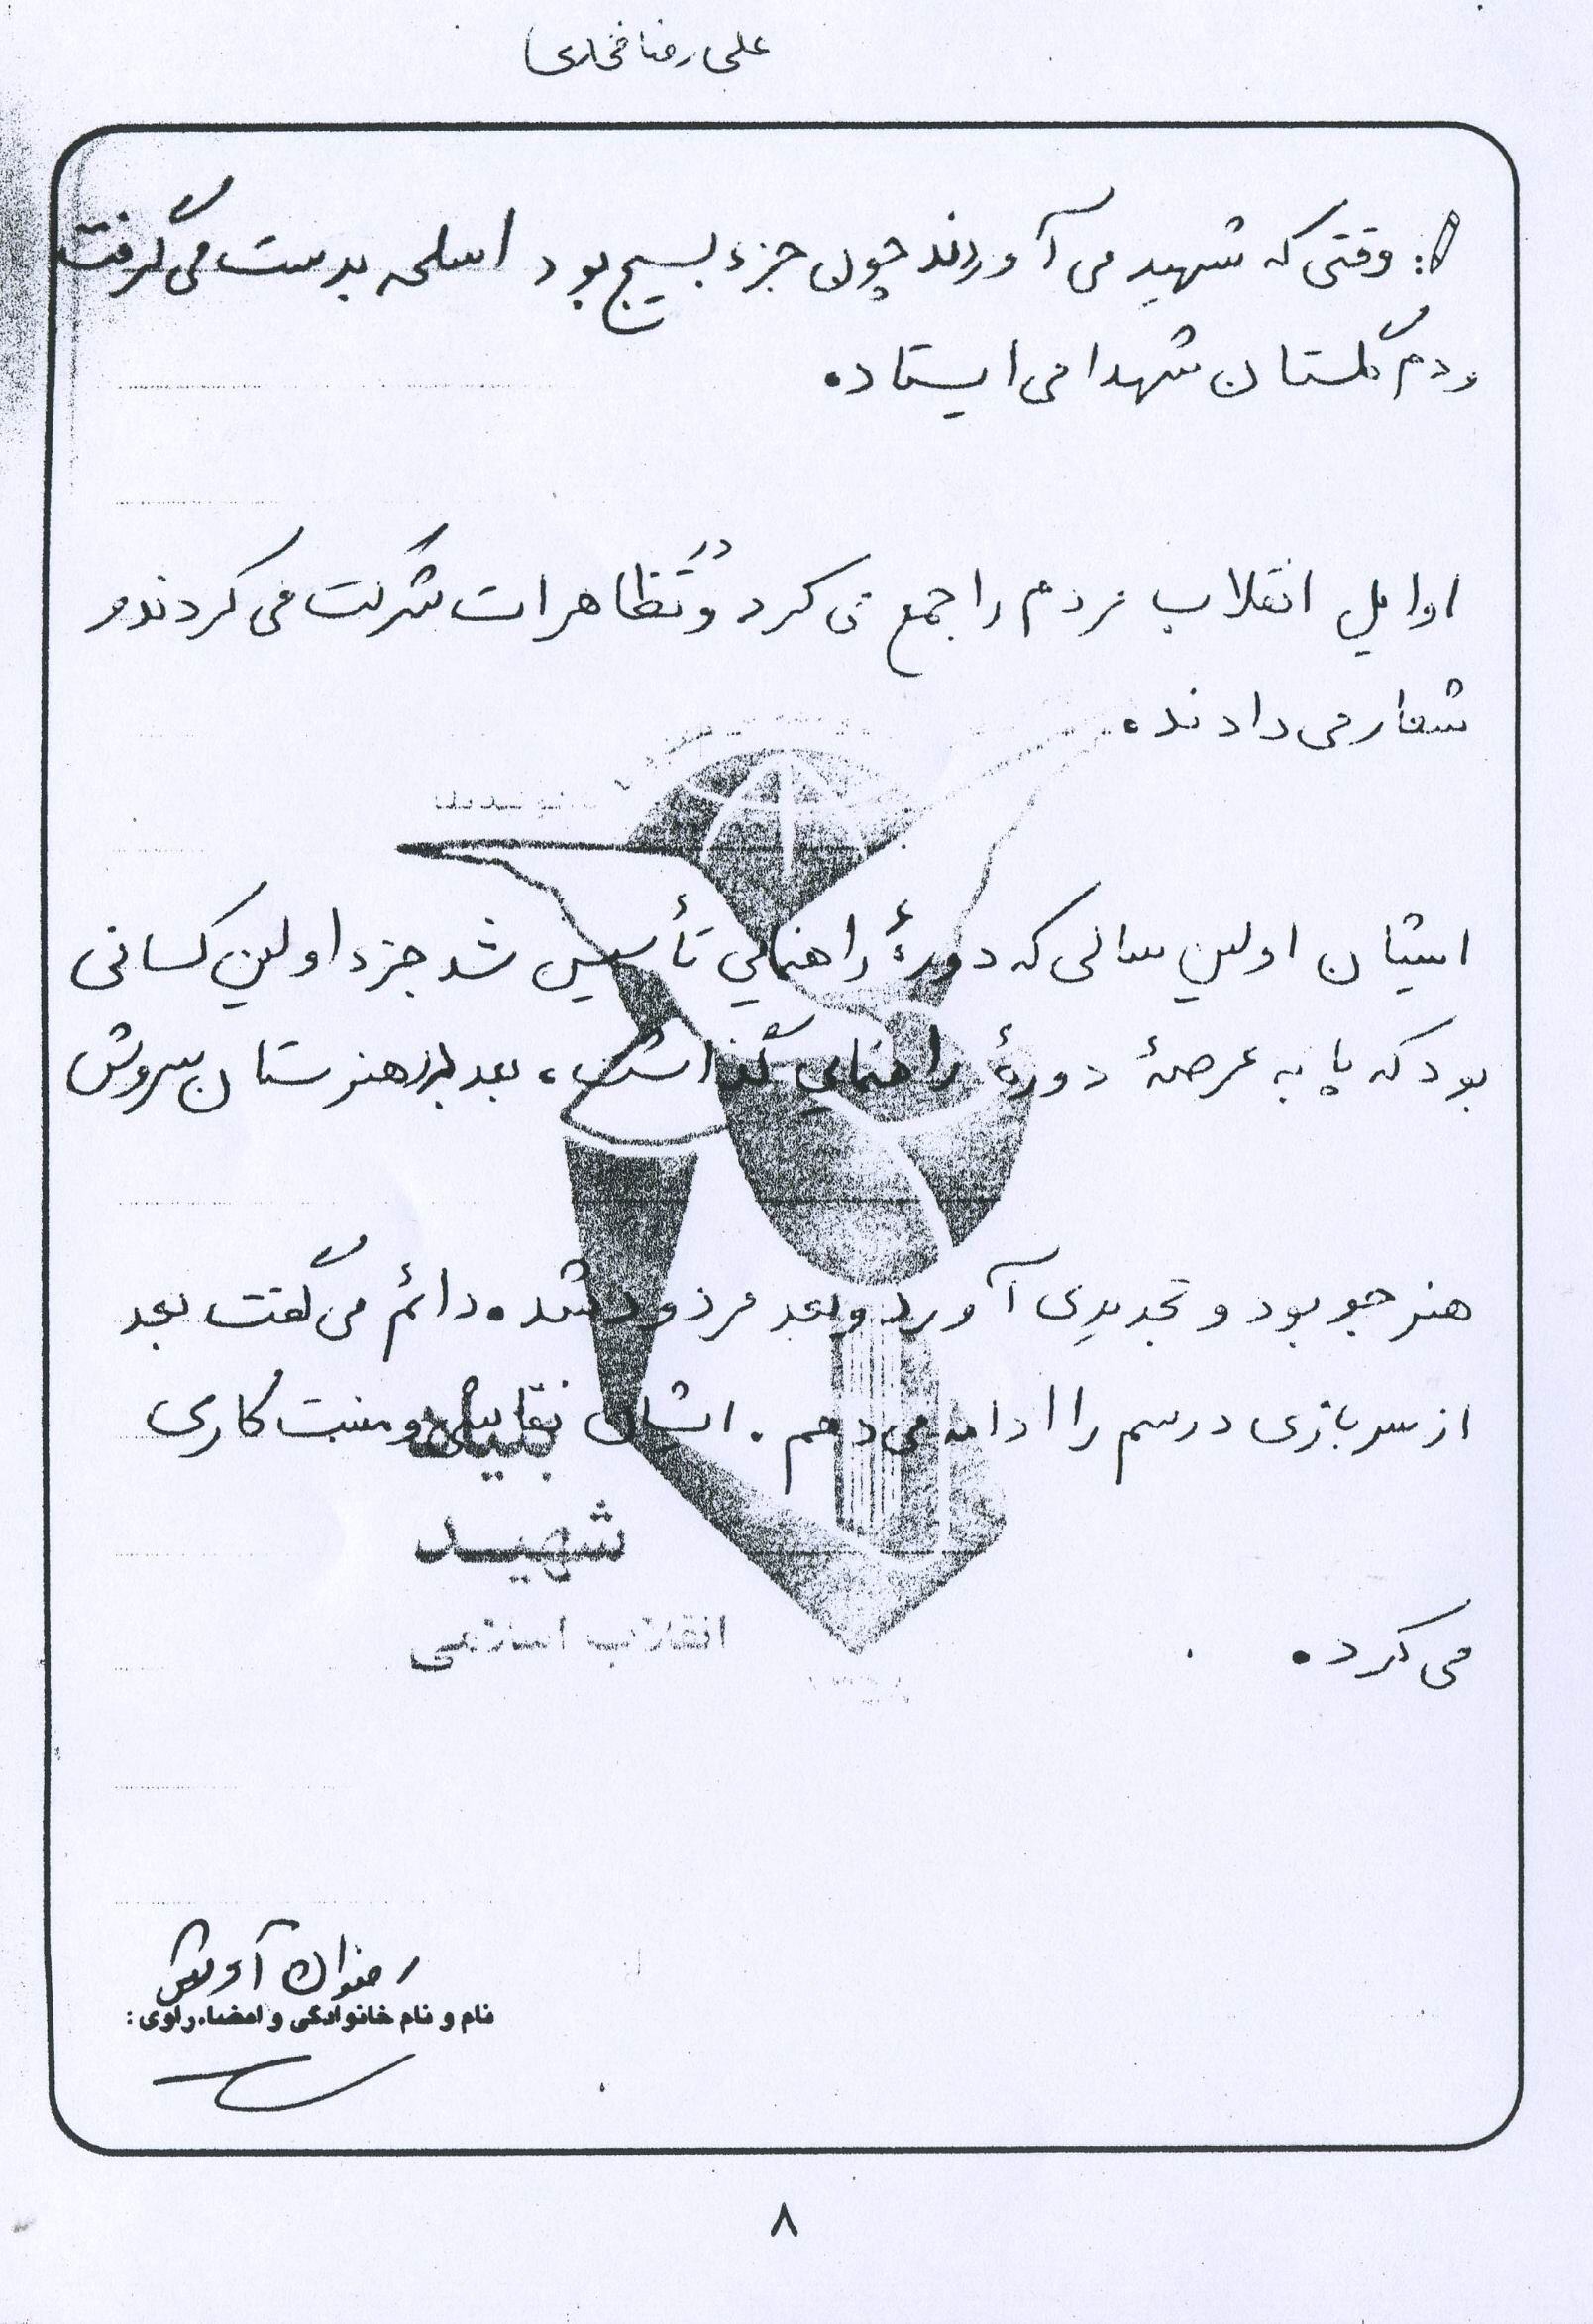 علی رضا فخاری
: وقتی که شهید می آوردند چون جزء بسیج بود اسلحه بدست می گرفت
ودم گلستان شهدا می ایستاد.
اوایل انقلاب مردم را جمع می کرد و در تظاهرات شرکت می کردند و
شعار می دادند.
ایشان اولین سالی که دورهٔ راهنمایی تأسیس شد جزء اولین کسانی
بود که پا به عرصهٔ دورهٔ راهنمایی گذاشت، بعد در هنرستان سروش
هنرجو بود و تجدیدی آورد و بعد مردود شد. دائم می گفت بعد
از سربازی درسم را ادامه می دهم. ایشان نقاشی و منبت کاری
بنیاد
شهید
انقلاب اسلامی
می کرد.
رضوان
نام و نام خانوادگی و امضاء راوی:
۸